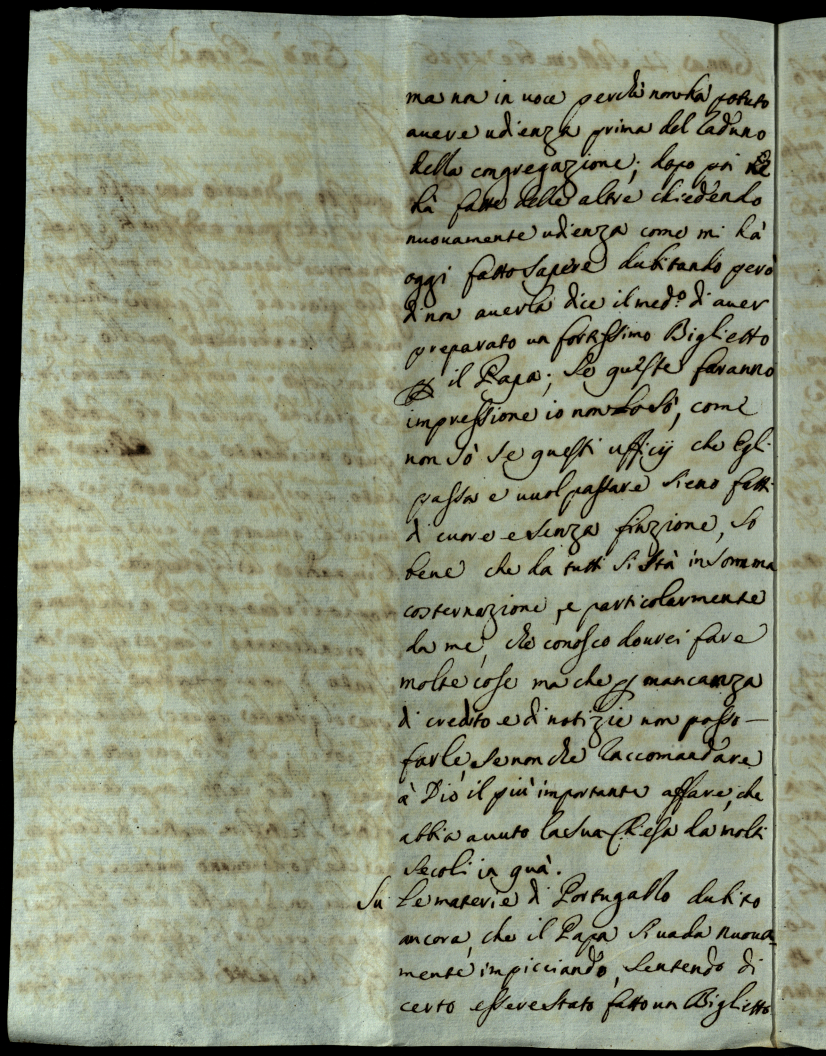 ma non in voce perchè non hà potuto
avere udienza prima del Raduno
della congregazione; dopo poi
hà fatte delle altre chiedendo
nuovamente udienza come mi hà
oggi fatto sapere dubitando però
di non averla dice il med.º di aver
preparato un fortissimo Biglietto
il Papa; Se queste faranno
impressione io non lo sò, come
non sò se questi ufficij che Egli
passa e vuol passare sieno fatti
di cuore e senza finzione, So
bene che da tutti si stà in somma
costernazione, e particolarmente
da me, che conosco dovrei fare
molte cose ma che p mancanza
di credito e di notizie non posso
farle, se non che raccomandare
à Dio il più importante affare, che
abbia avuto la sua Chiesa da molti
secoli in quà.
Su le materie di Portugallo dubito
ancora, che il Papa si vada nuova-
mente impicciando, sentendo di
certo essere stato fatto un Biglietto